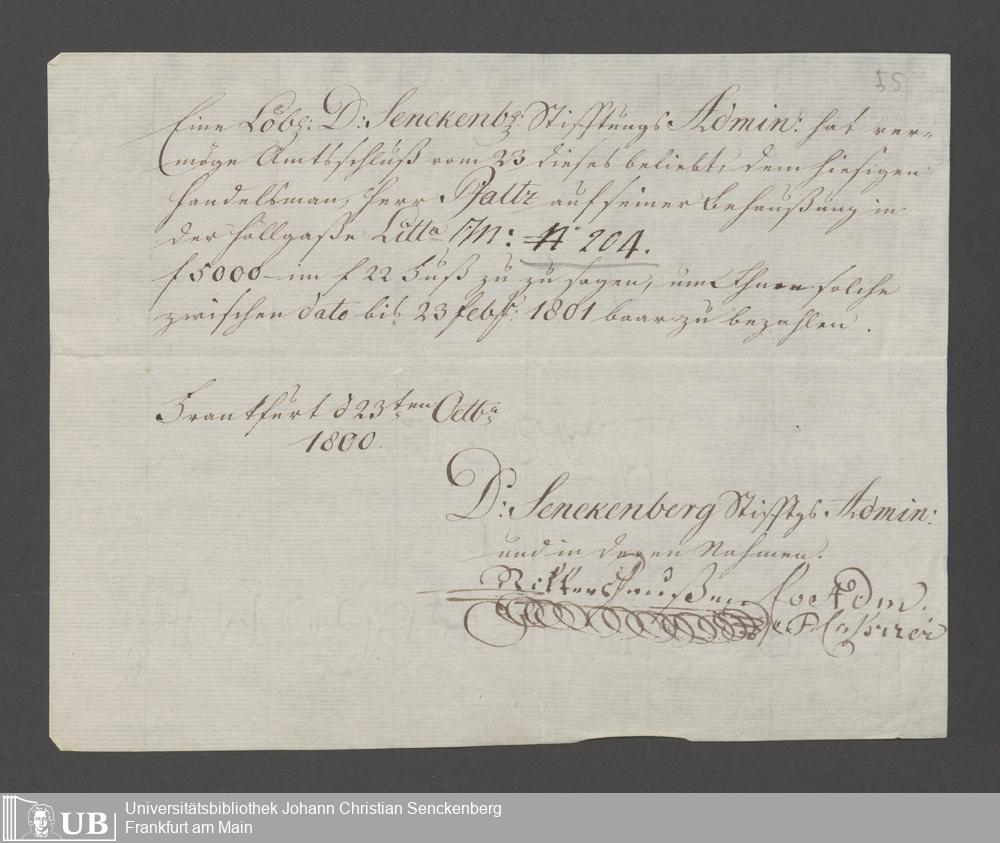 25
Eine Löbl: D: Senckenbg: Stifftungs Admin: hat ver-
möge Amtsschluß vom 23 dieses beliebt, dem hiesigen
Handelsman, Herr Pfaltz auf seiner Behaußung in
der Höllgaße Litta M: N° 204.
f 5000 im f 22 Fuß zu zu sagen, um Ihnen solche
zwischen dato bis 23 febr: 1801 baar zu bezahlen.
Frankfurt d 23ten Octbr
1800.
D: Senckenberg Stifftgs Admin:
und in deren Nahmen.
Rittershaußen CoAdm.
et Cassirer
UB
Universitätsbibliothek Johann Christian Senckenberg
Frankfurt am Main